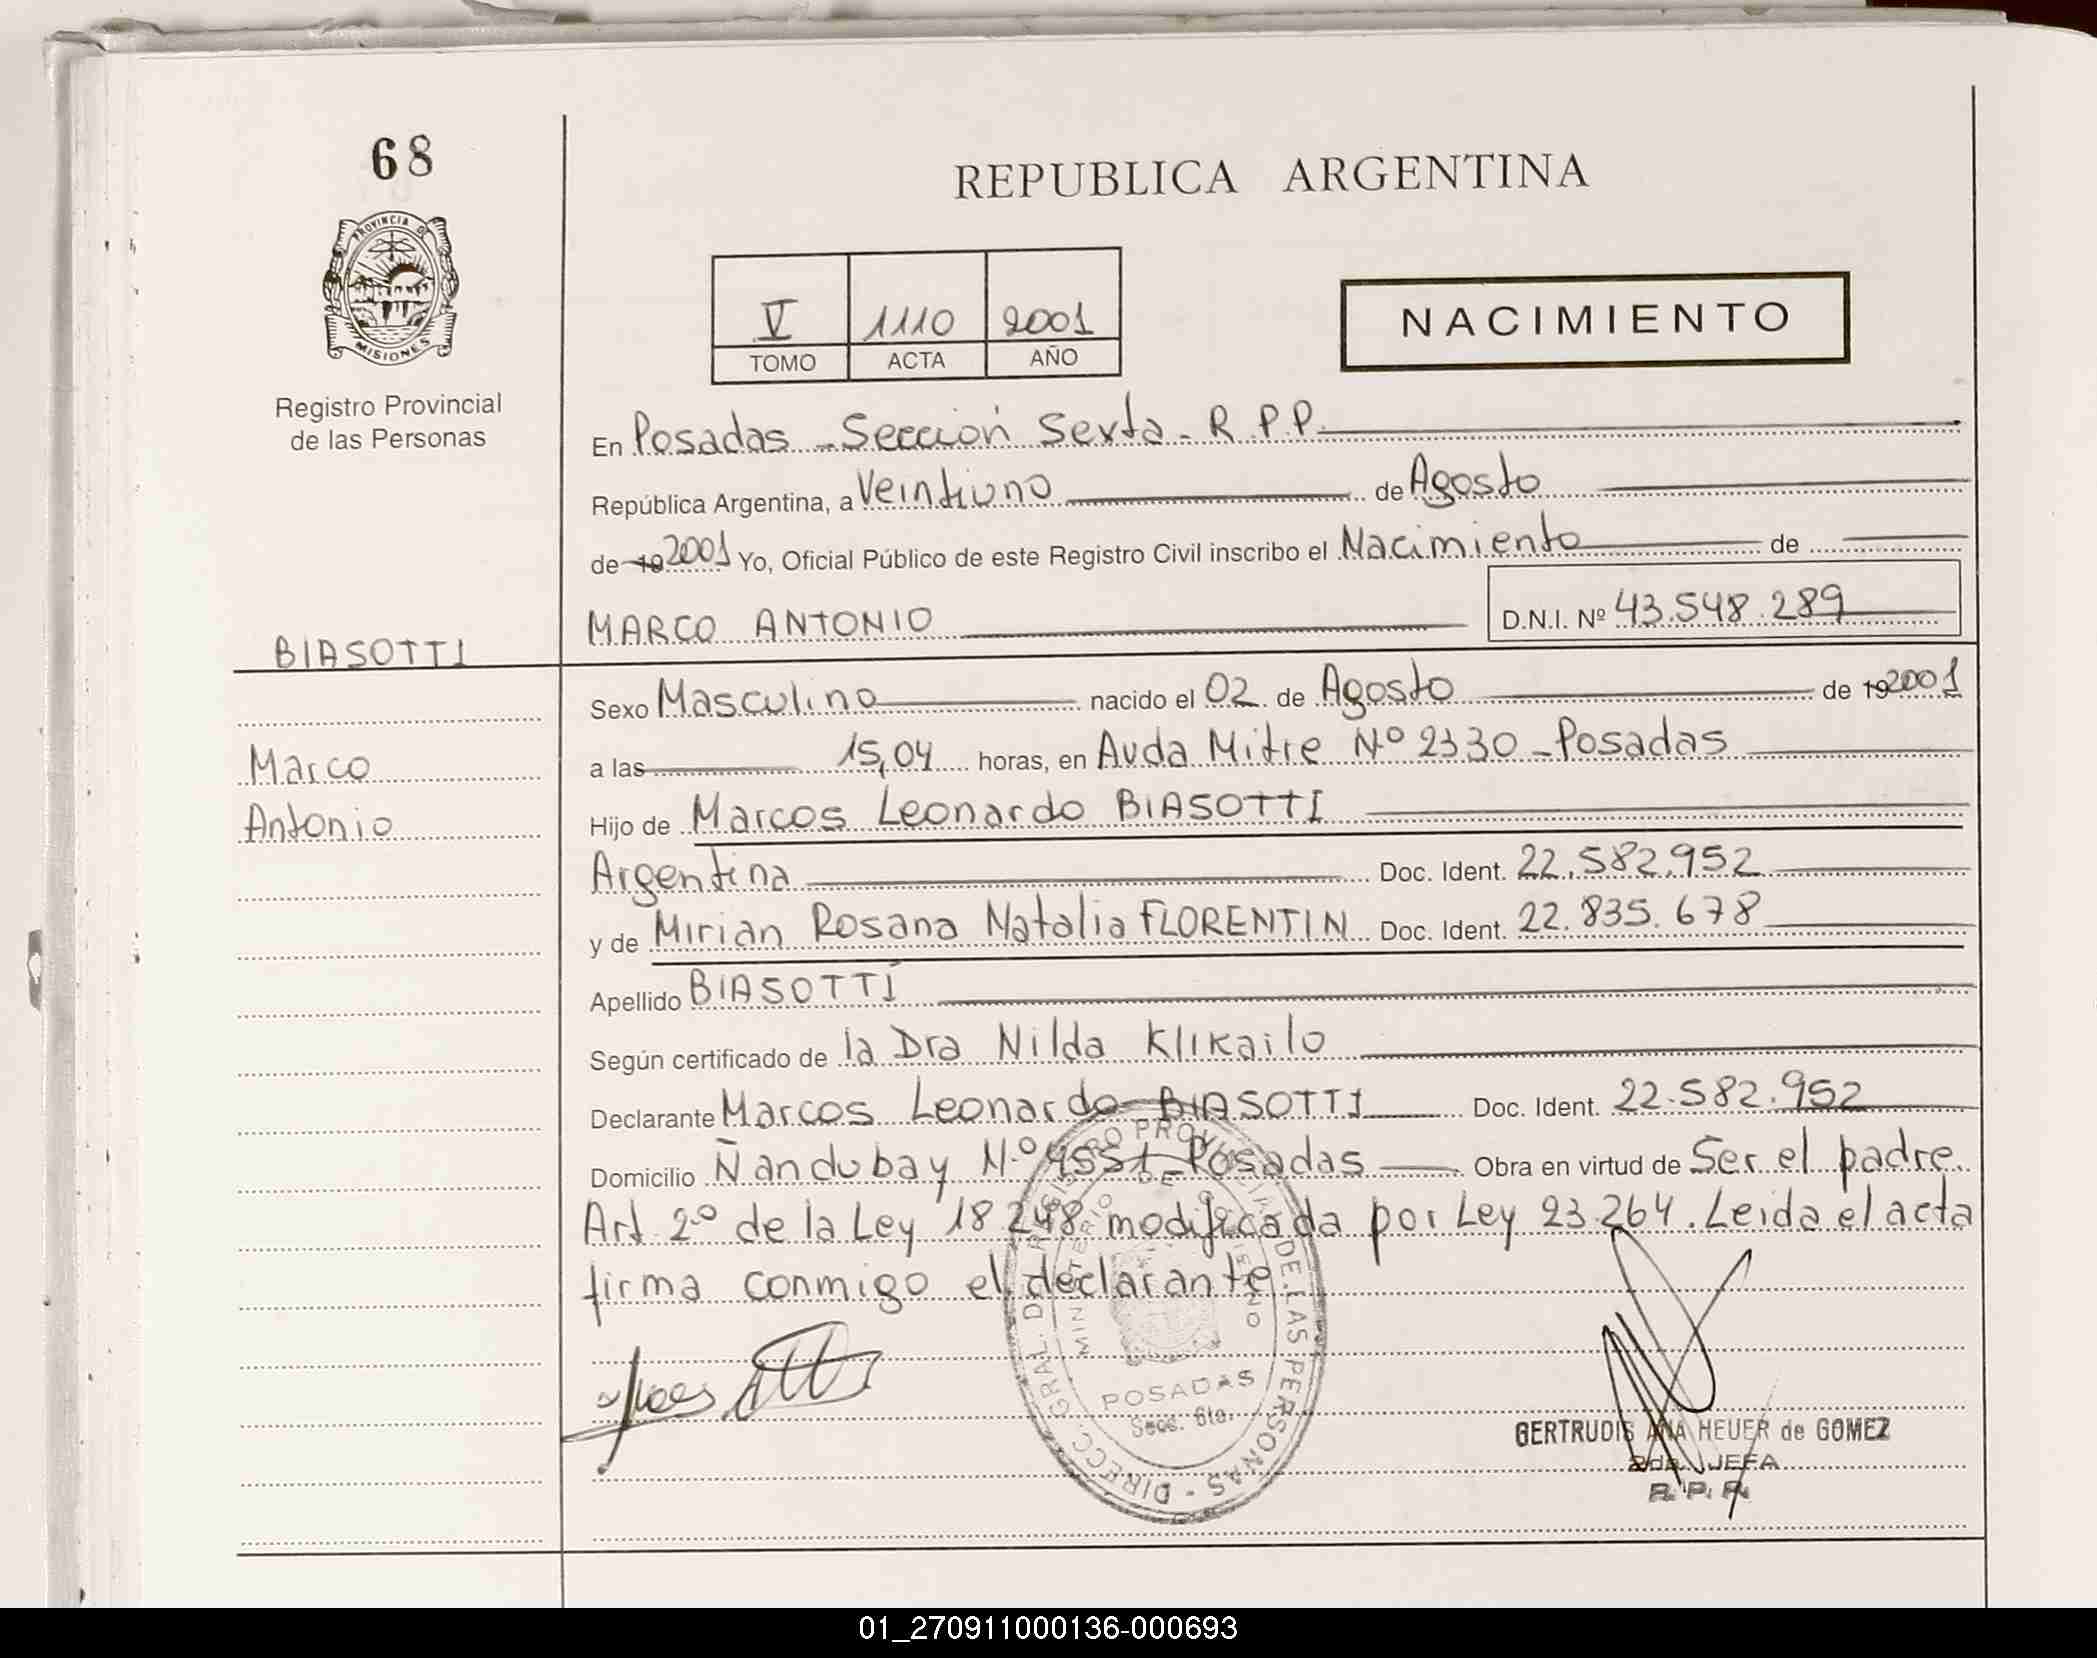 68
REPUBLICA ARGENTINA
PROVINCIA DE
MISIONES
Registro Provincial
de las Personas
V 1110 2001
TOMO ACTA AÑO
NACIMIENTO
En Posadas - Sección Sexta - R.P.P.
República Argentina, a Veintiuno de Agosto
de 19 2001 Yo, Oficial Público de este Registro Civil inscribo el Nacimiento de
MARCO ANTONIO D.N.I. Nº 43.548.289
BIASOTTI
Sexo Masculino nacido el 02 de Agosto de 19 2001
Marco
Antonio
a las 15,04 horas, en Avda Mitre Nº 2330 - Posadas
Hijo de Marcos Leonardo BIASOTTI
Argentina Doc. Ident. 22.582.952
y de Mirian Rosana Natalia FLORENTIN Doc. Ident. 22.835.678
Apellido BIASOTTI
Según certificado de la Dra Nilda Klikailo
Declarante Marcos Leonardo BIASOTTI Doc. Ident. 22.582.952
Domicilio Ñandubay N.º 4551 - Posadas Obra en virtud de Ser el padre.
Art 2º de la Ley 18.248 modificada por Ley 23.264. Leida el acta
firma conmigo el declarante.
DIRECC. GRAL. DE REGISTRO PROVINCIAL DE LAS PERSONAS -
MINISTERIO DE GOBIERNO
POSADAS
Secc. 6ta.
GERTRUDIS ANA HEUER de GOMEZ
2da. JEFA
R. P. P.
01_270911000136-000693